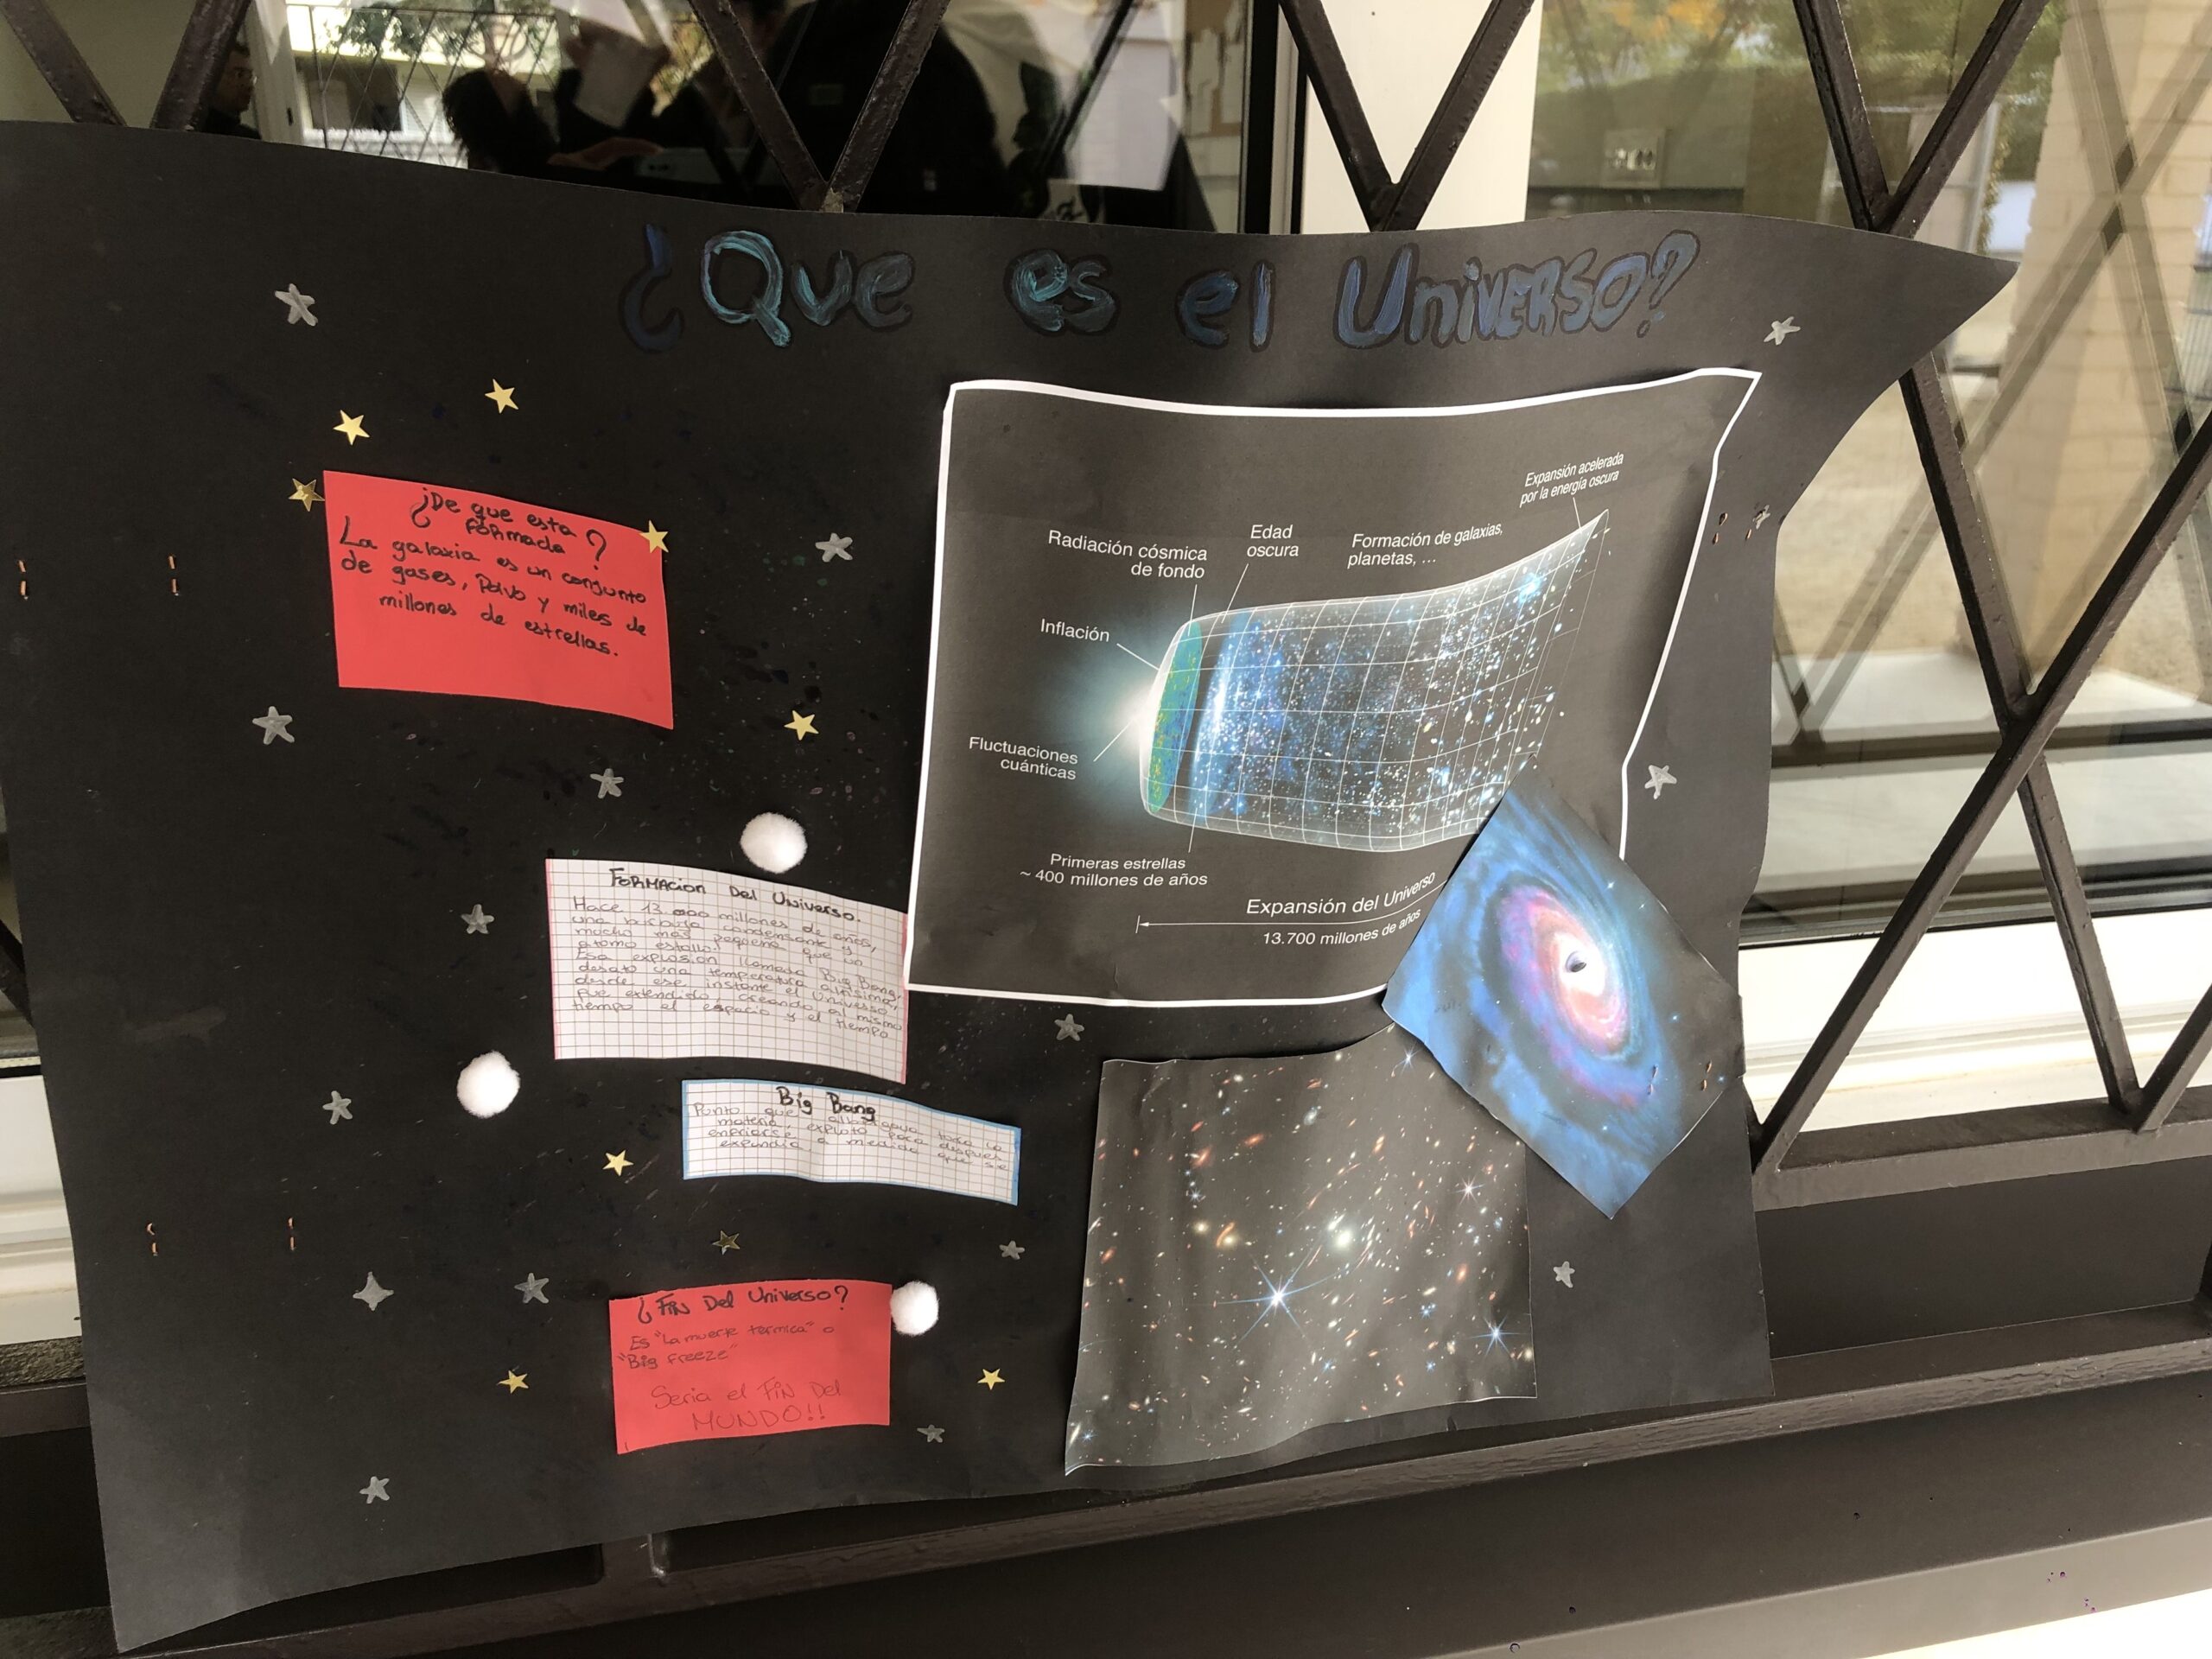 ¿Que es el Universo?
¿De que esta
formada?
La galaxia es un conjunto
de gases, Polvo y miles de
millones de estrellas.
Expansión acelerada
por la energía oscura
Radiación cósmica
de fondo
Edad
oscura
Formación de galaxias,
planetas, ...
Inflación
Fluctuaciones
cuánticas
Primeras estrellas
~ 400 millones de años
Expansión del Universo
13.700 millones de años
Formacion Del Universo.
Hace 13.000 millones de años,
una condensante y
mucho mas pequeña que un
atomo estalló.
Esa explosion llamada Big Bang,
desato una temperatura altisima,
desde ese instante el Universo,
fue extendido, creando al mismo
tiempo el espacio y el tiempo
Big Bang
Punto que toda la
materia, explotó para despues
enfriarse a medida que se
expandia
¿Fin Del Universo?
Es "La muerte termica" o
"Big Freeze"
Seria el Fin Del
MUNDO!!